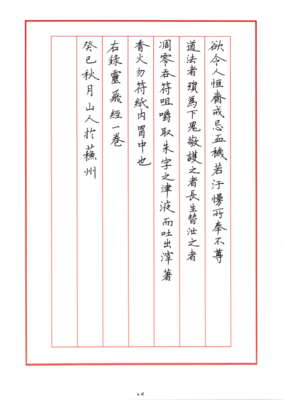 欲令人恒齋戒忌血穢若汙慢所奉不尊
道法者殞為下鬼敬護之者長生替泄之者
凋零吞符咀嚼取朱字之津液而吐出滓著
香火勿符紙內胃中也
右錄靈飛經一卷
癸巳秋月山人於蘇州